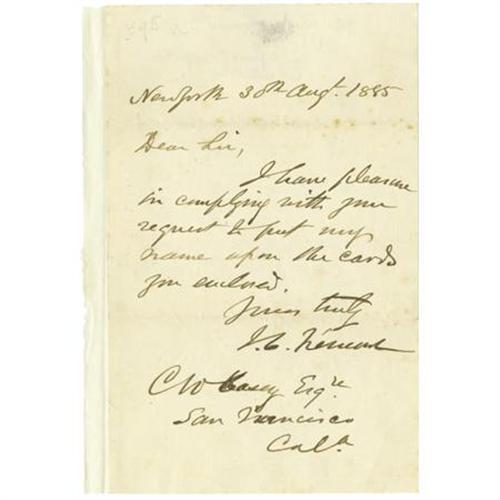 New York 30th Augt. 1885
Dear Sir,
I have pleasure
in complying with your
request to put my
name upon the cards
you enclosed.
Yours truly
J. C. Frémont
C W Casey Esqre
San Francisco
Cala